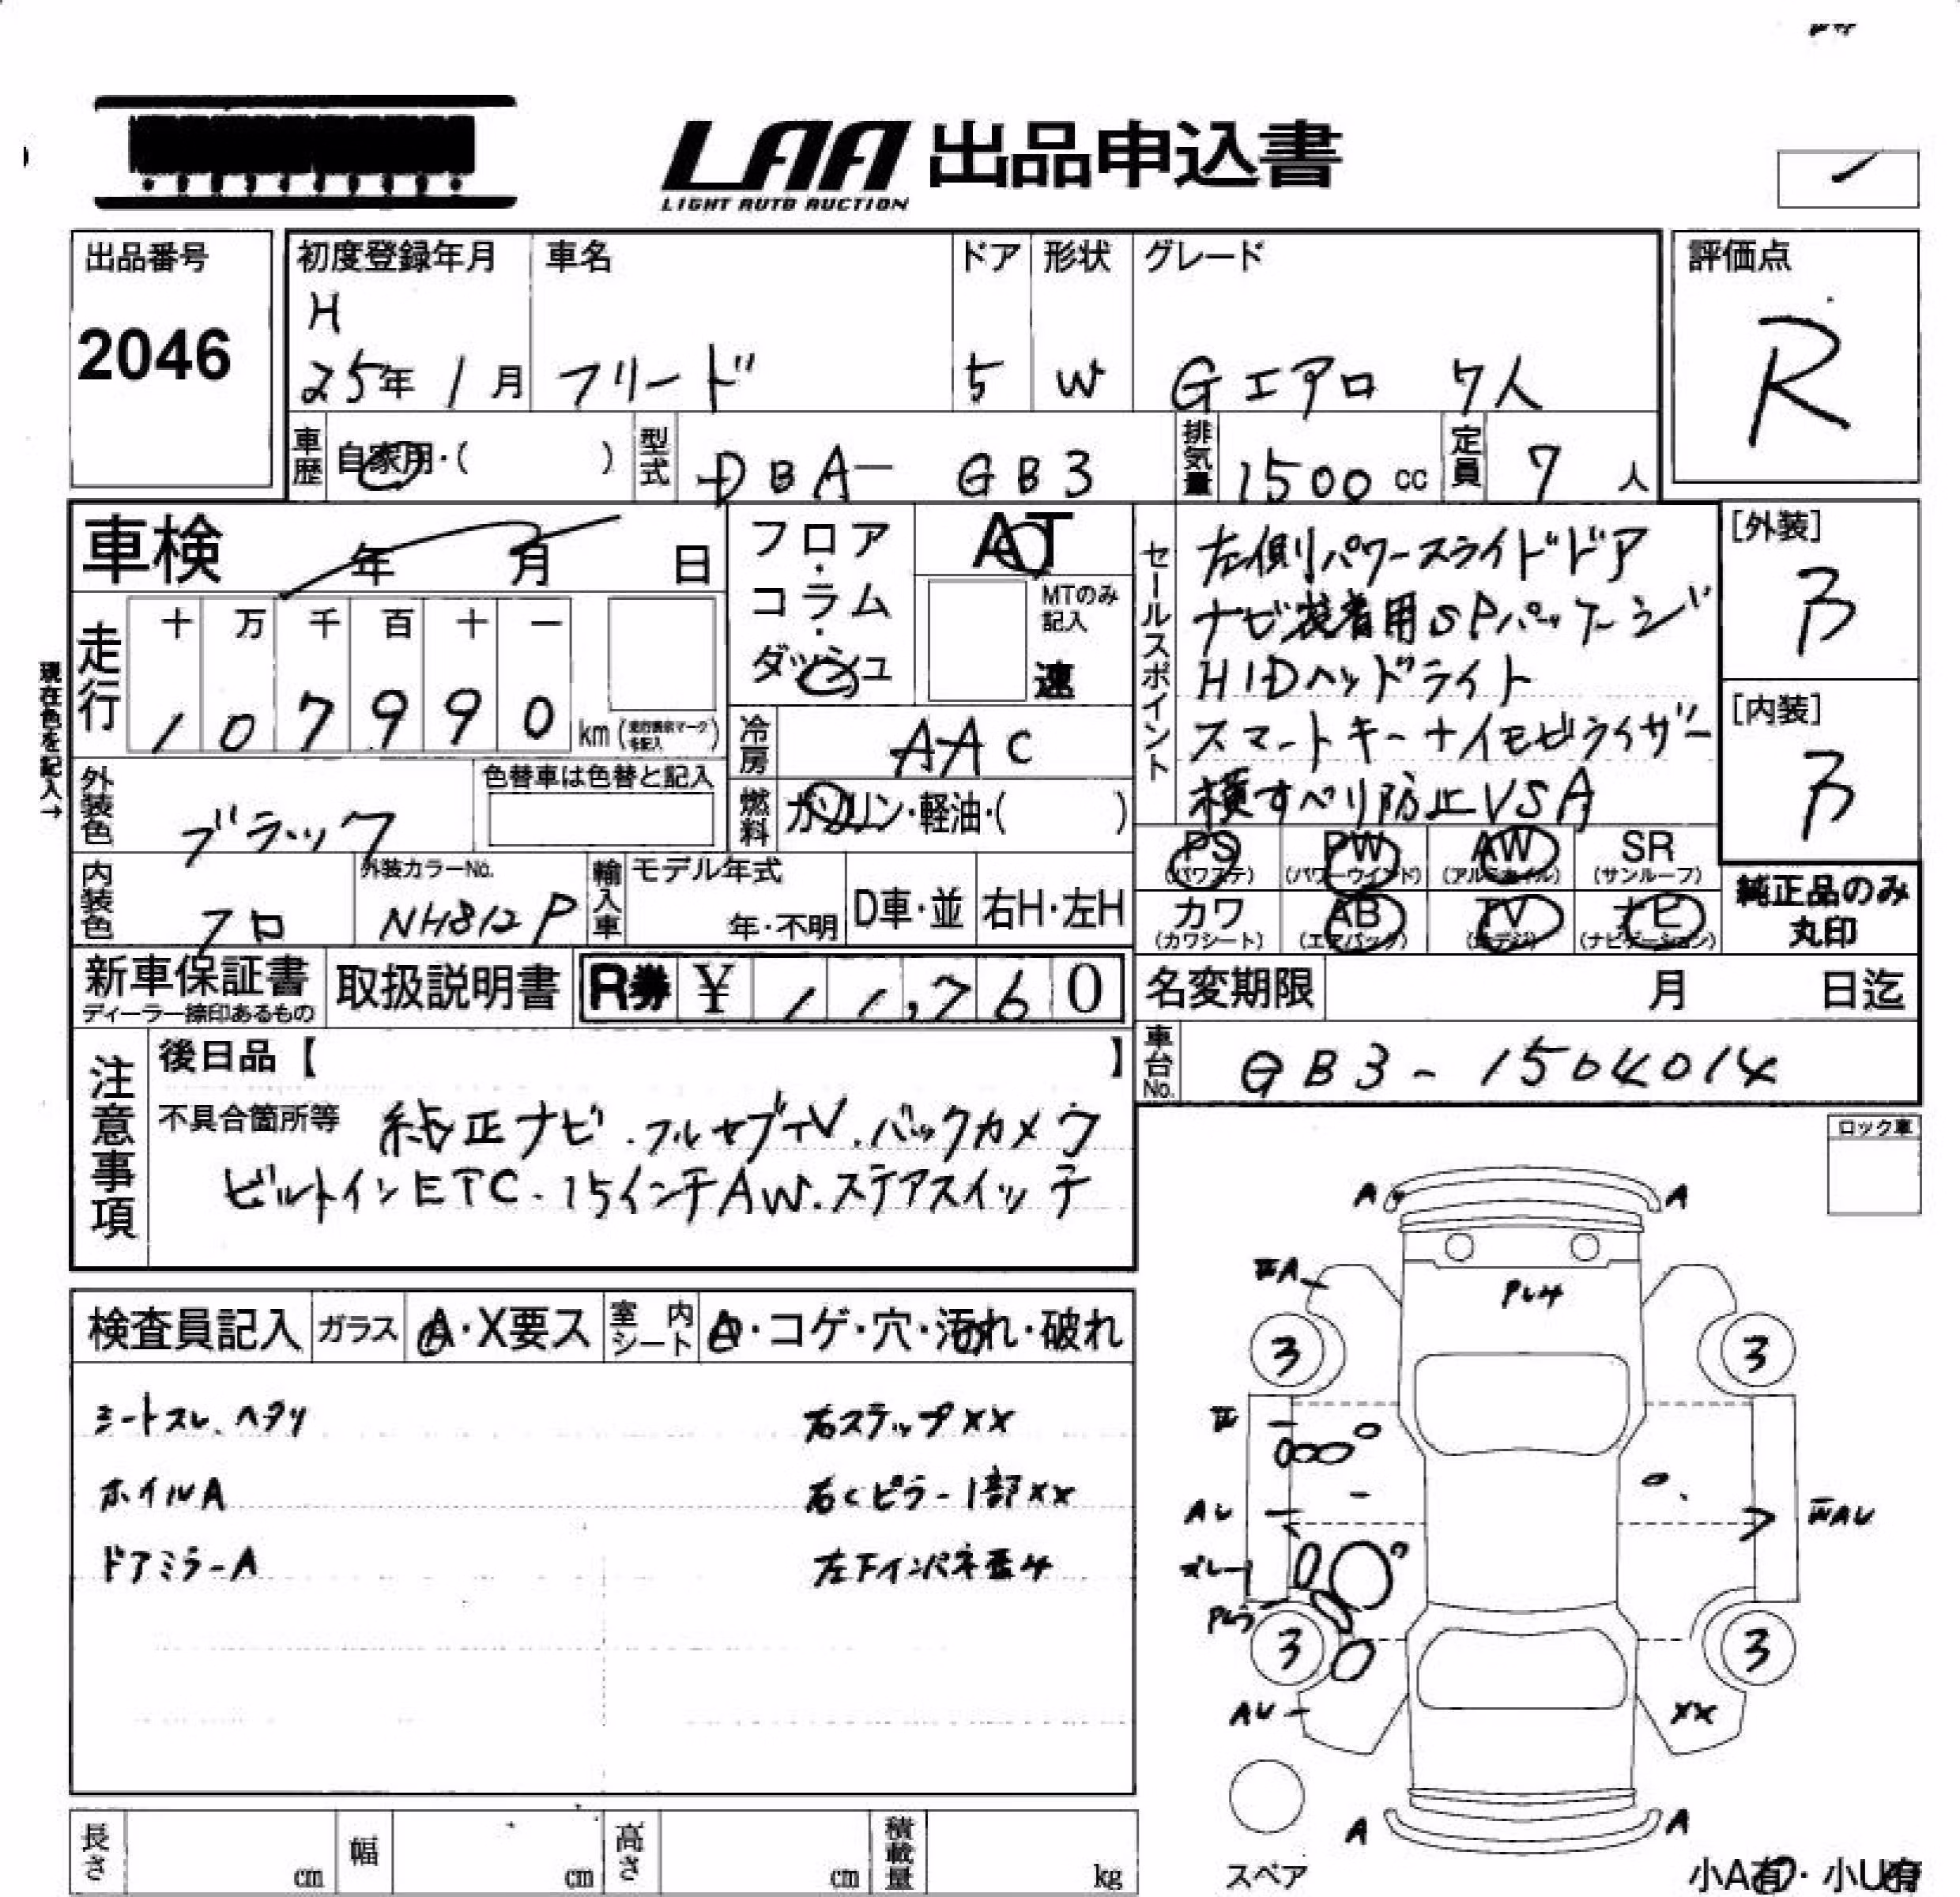 LAA 出品申込書
LIGHT AUTO AUCTION
出品番号
2046
初度登録年月
H
25年 1月
車名
フリード
ドア
5
形状
W
グレード
Gエアロ 7人
評価点
R
車歴
自家用・( )
型式
DBA- GB3
排気量
1500 cc
定員
7 人
車検 年 月 日
フロア・コラム・ダッシュ
AT
MTのみ記入
速
セールスポイント
左側パワースライドドア
ナビ装着用SPパッケージ
HIDヘッドライト
スマートキー+イモビライザー
横すべり防止VSA
[外装]
[内装]
現在色を記入→
走行
十 万 千 百 十 一
1 0 7 9 9 0 km
冷房
AAC
燃料
ガソリン・軽油・( )
外装色
ブラック
色替車は色替と記入
PS (パワステ)
PW (パワーウインド)
AW (アルミホイル)
SR (サンルーフ)
カワ (カワシート)
AB (エアバック)
TV (地デジ)
ナビ (ナビゲーション)
純正品のみ
丸印
内装色
クロ
外装カラーNo.
NH812P
輸入車
モデル年式
年・不明
D車・並
右H・左H
新車保証書
ディーラー捺印あるもの
取扱説明書
R券 ¥ 11,760
名変期限 月 日迄
車台No.
GB3-1504014
注意事項
後日品【 】
不具合箇所等 純正ナビ.フルセグTV.バックカメラ
ビルトインETC.15インチAW.ステアスイッチ
ロック車
検査員記入
ガラス
A・X要ス
室内シート
A・コゲ・穴・汚れ・破れ
シートスレ、ヘタリ
右ステップXX
ホイルA
右Cピラー1部XX
ドアミラーA
A A
3 3
AU
3 3
AU
XX
A A
スペア
小A有・小U有
長さ cm
幅 cm
高さ cm
積載量 kg